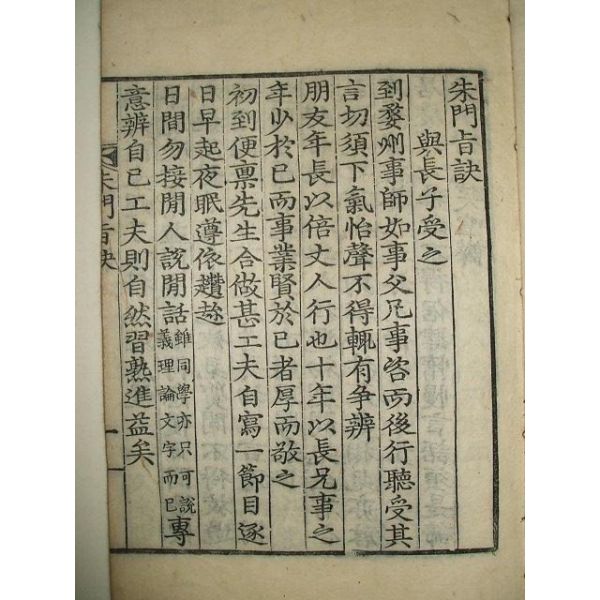 朱門旨訣
與長子受之
到婺州事師如事父凡事咨而後行聽受其
言切須下氣怡聲不得輒有爭辨
朋友年長以倍丈人行也十年以長兄事之
年少於己而事業賢於己者厚而敬之
初到便禀先生合做甚工夫自寫一節目逐
日早起夜眠遵依趲趂
日間勿接閒人說閒話雖同學亦只可說義理論文字而已專
意辨自己工夫則自然習熟進益矣
朱門旨訣
一